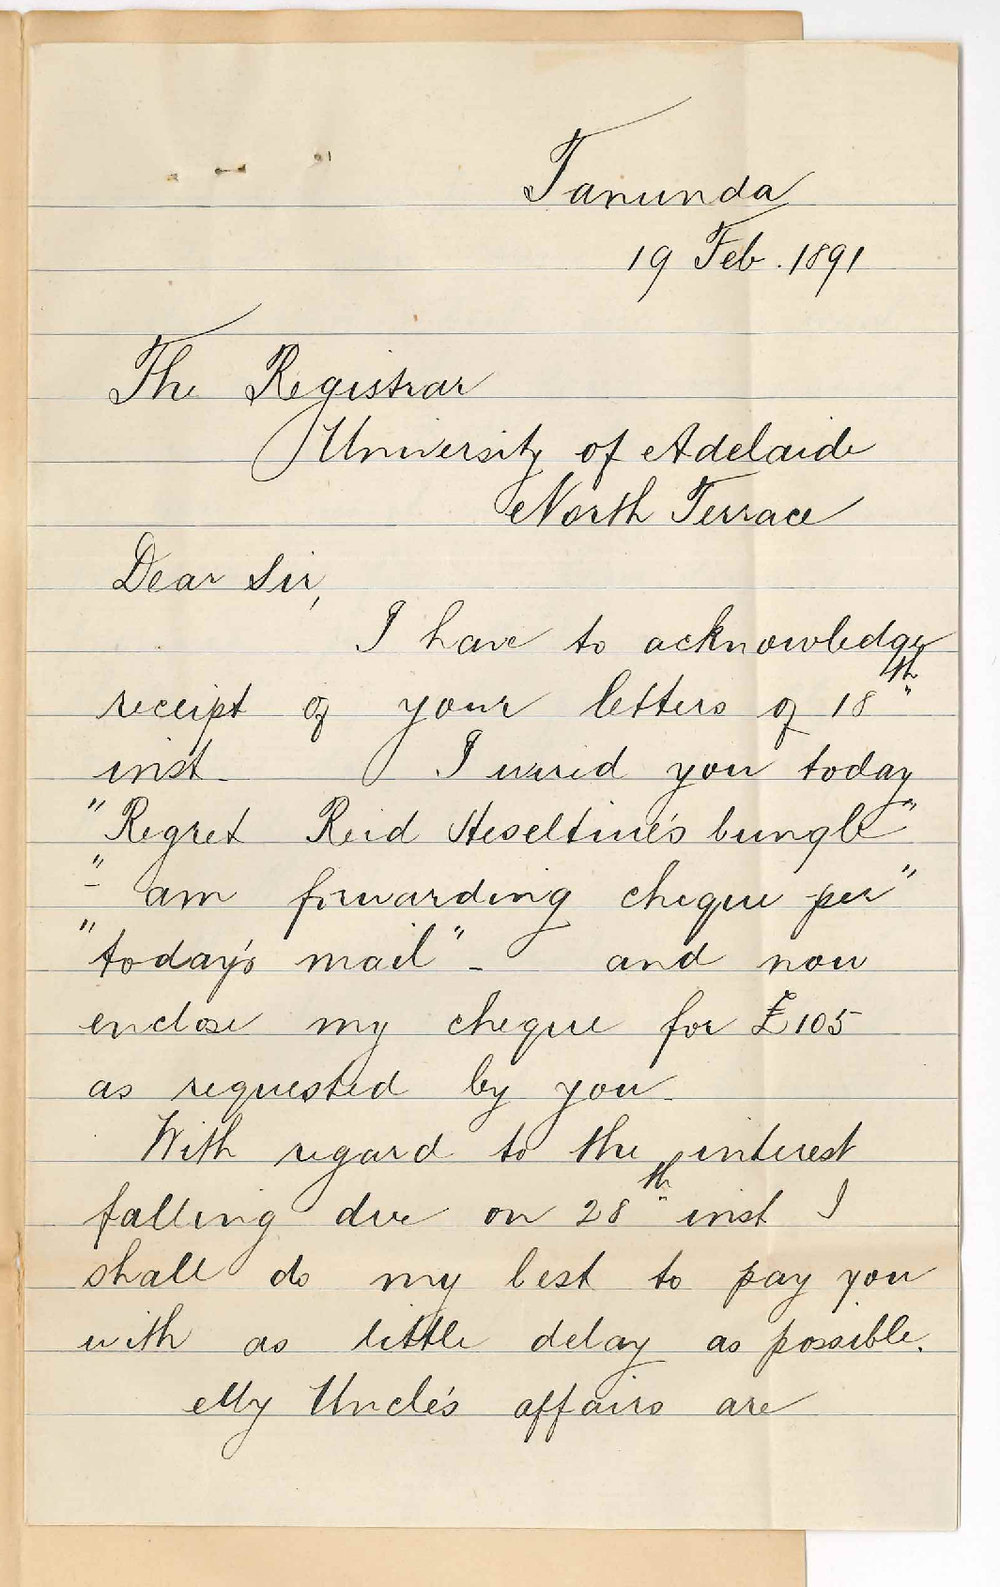 Tanunda
19 Feb. 1891
The Registrar
University of Adelaide
North Terrace
Dear Sir,
I have to acknowledge
receipt of your letters of 18th
inst. I wired you today
"Regret Reid Heseltine's bungle"
" am forwarding cheque per"
"today's mail" - and now
enclose my cheque for £105
as requested by you.
With regard to the interest
falling due on 28th inst I
shall do my best to pay you
with as little delay as possible.
My Uncle's affairs are